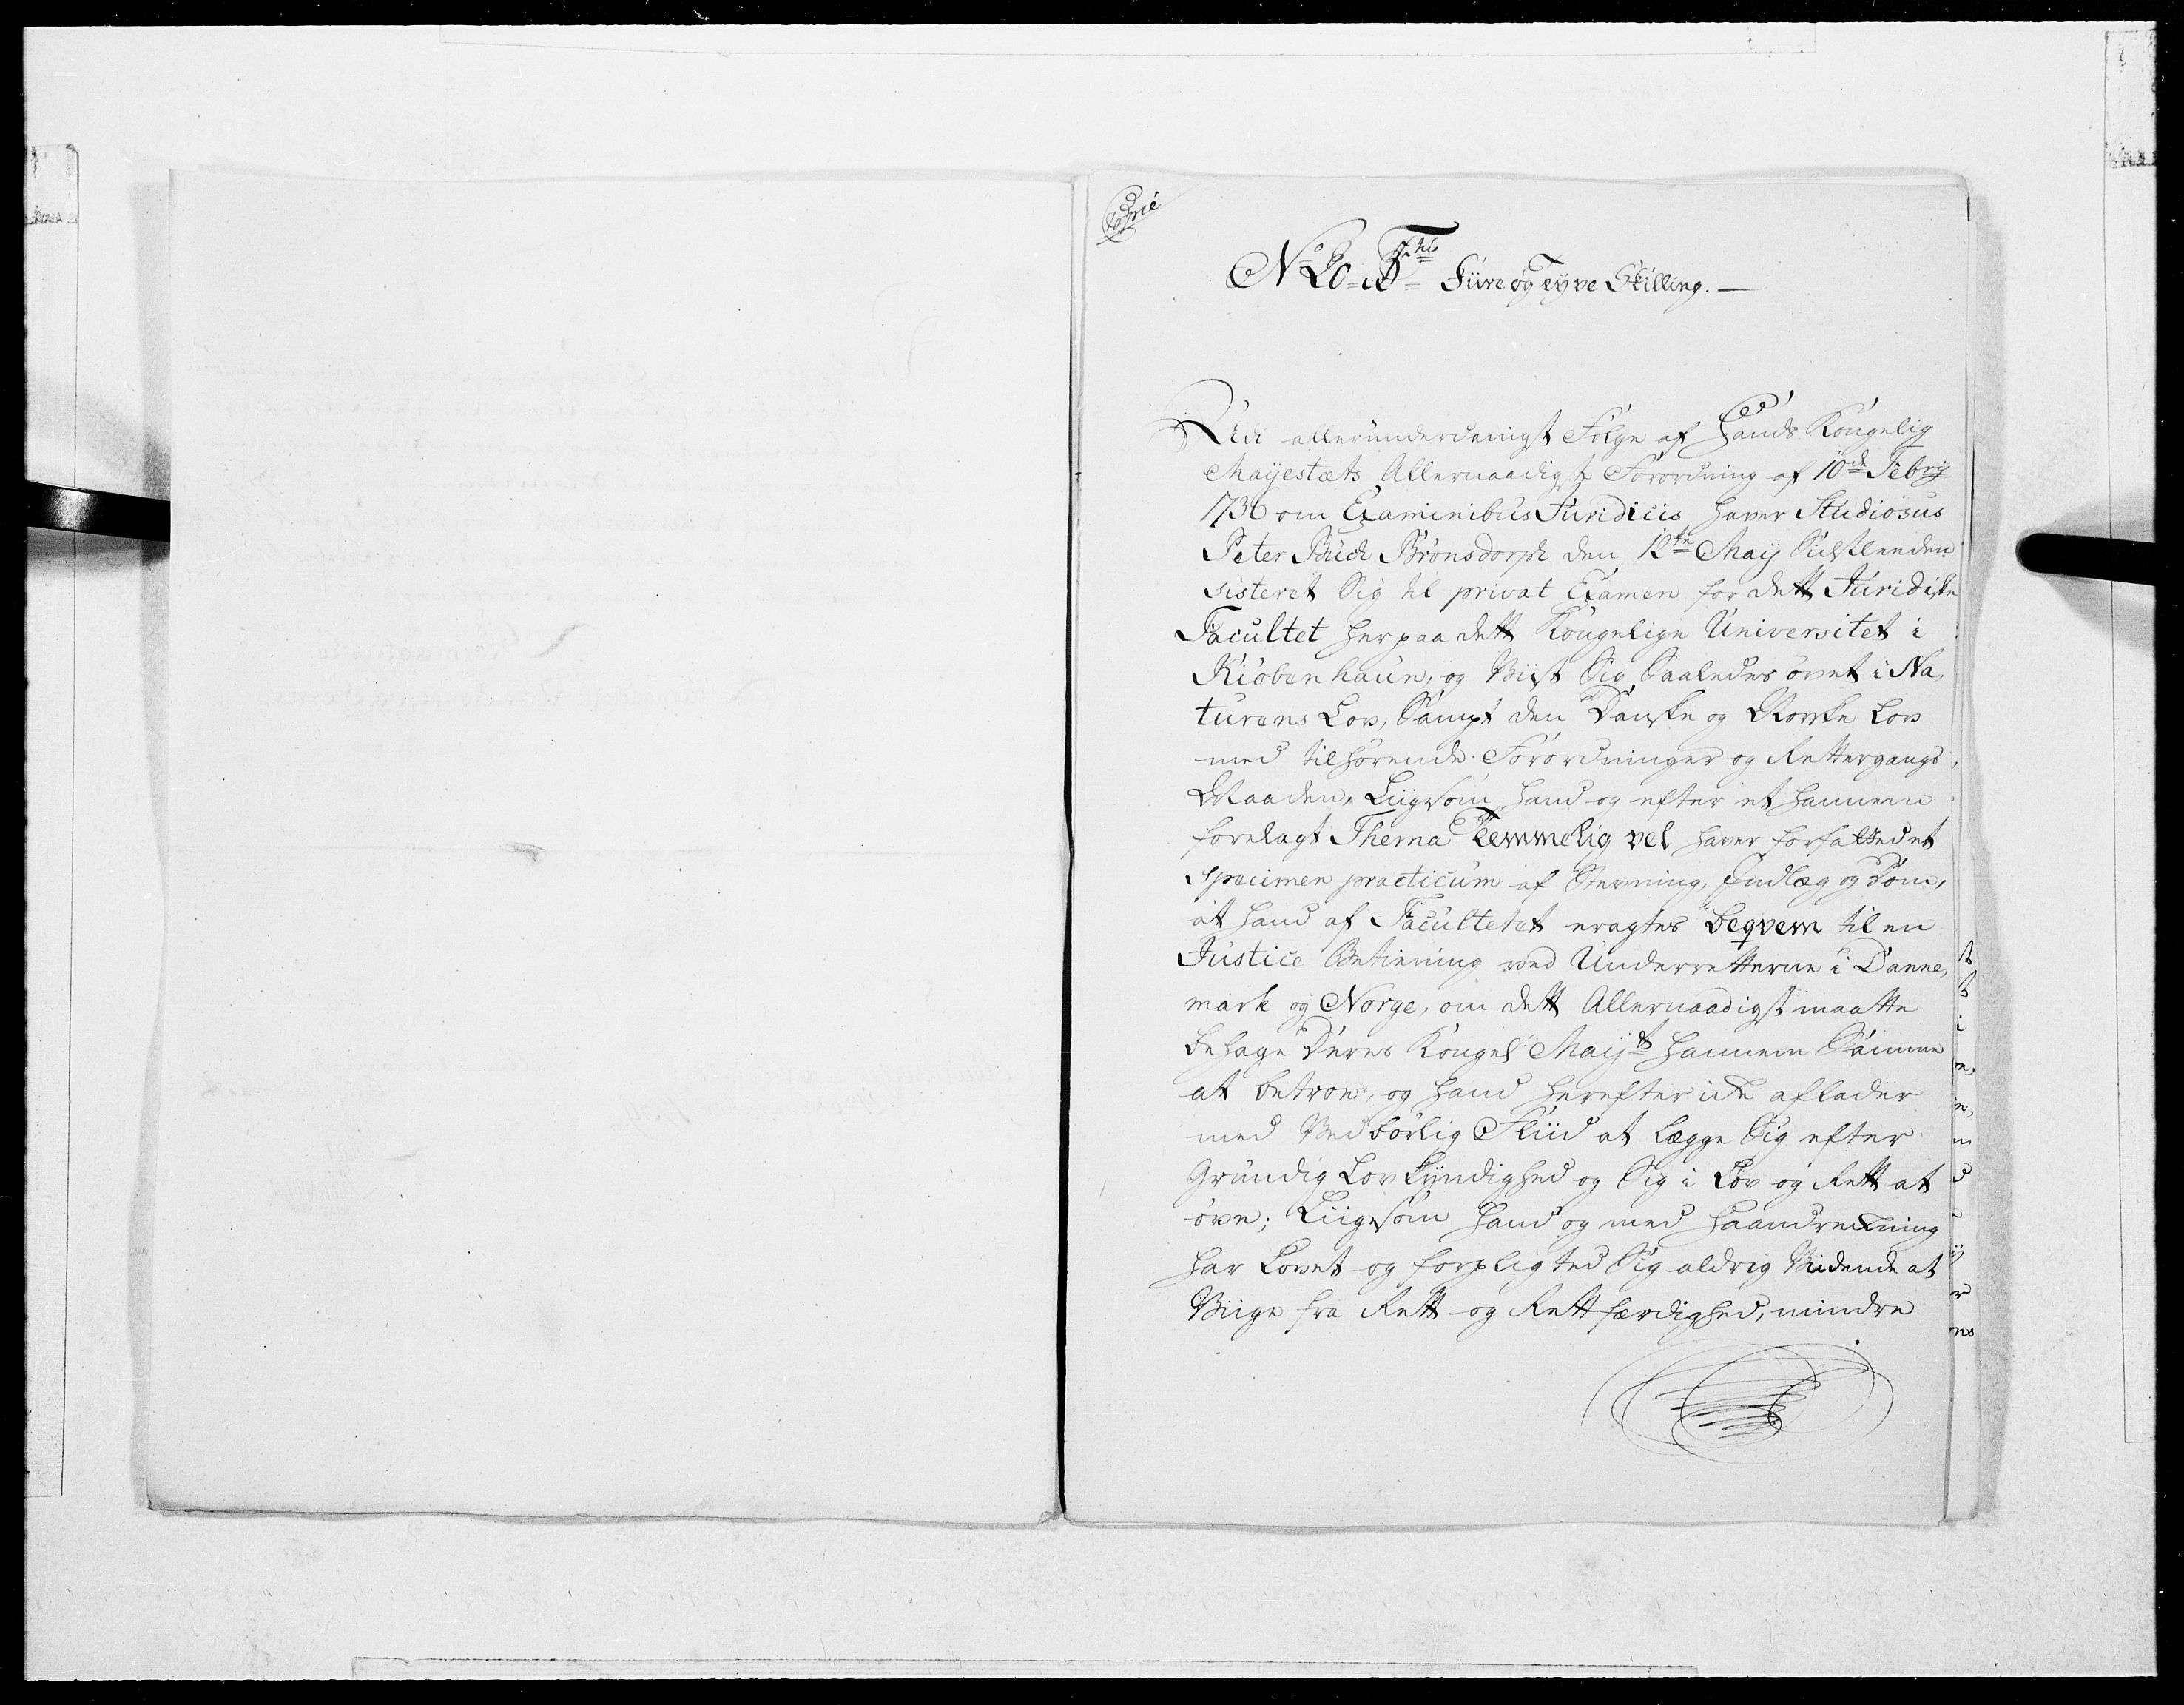 Copie
No 20
Fiire og Tyve Skilling.
Udi allerunderdanigst Fölge af Hands Kongelig
Mayestæts Allernaadigste Forordning af 10de Febrij
1736 om Examinibus Juridicis, haver Studiosus
Peter Buch Brönsdorph den 12te Maij Sidstleeden
sisteret Sig til privat Examen for dett Juridiske
Facultet her paa dett Kongelige Universitet i
Kiöbenhaun, og Viist Sig Saaledes övet i Na,
turens Lov, Sampt den Danske og Norske Lov
med tilhörende Forordninger og Rettergangs,
Maaden, Liigesom hand og efter et hannem
forelagt Thema Temmelig vel haver forfatted et
Specimen practicum af Stevning, Indlæg og Dom,
at hand af Facultetet eragtes beqvem til en
Justice Betiening ved Underretterne i Danne,
mark og Norge, om dett Allernaadigst maatte
behage Deres Kongel Mayts hannem Samme
at betroe, og hand herefter icke aflader
med Vedbörlig Fliid at lægge Sig efter
Grundig Lovkyndighed og Sig i Lov og Rett at
öve; Liigesom hand og med haandrekning
har Lovet og forpligted Sig aldrig Viidende at
Viige fra Rett og Rettfærdighed, mindre